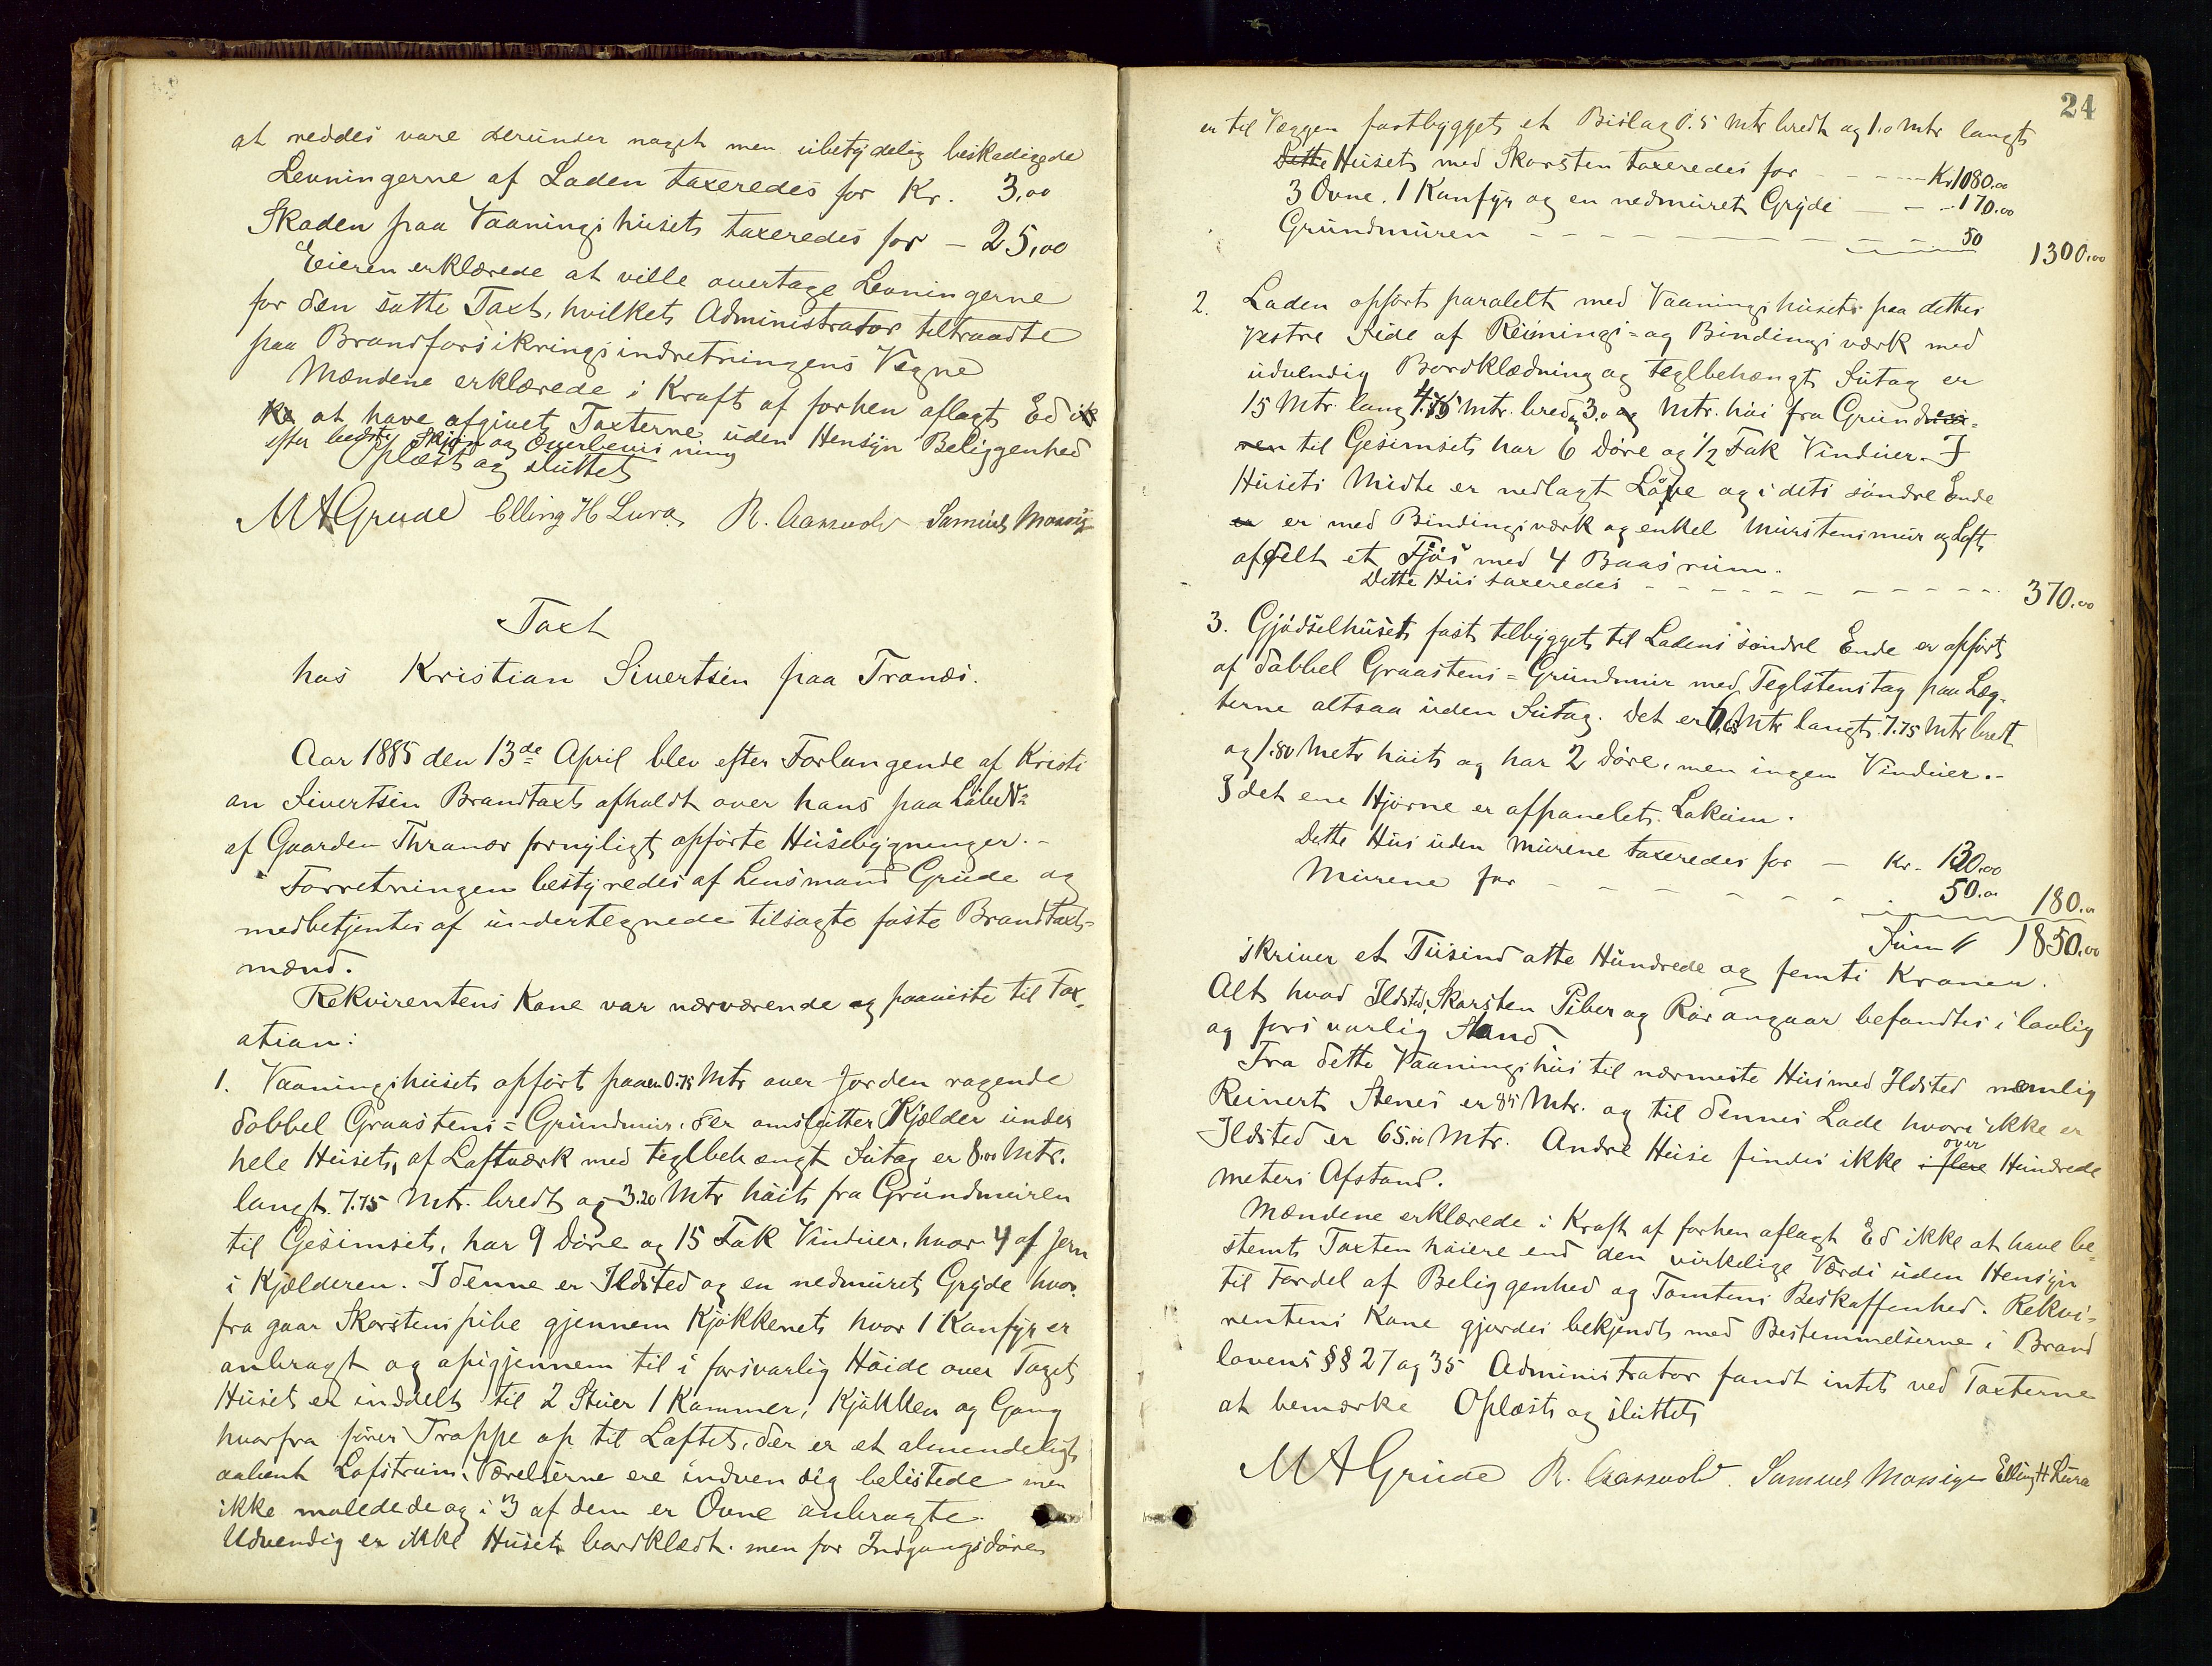 at reddes vare derunder noget men ubetydelig beskadigede
Levningerne af Laden taxeredes for Kr. 3,00
Skaden paa Vaaningshuset taxeredes for - 25,00
Eieren erklærede at ville overtage Levningerne
for den satte Taxt, hvilket Administrator tiltraadte
paa Brandforsikringsindretningens Vegne
Mændene erklærede i Kraft af forhen aflagt Ed ik
ke at have afgivet Taxterne uden Hensyn Beliggenhed
efter bedste Skjøn og Overbevisning
Oplæst og sluttet
M A Grude Elling H Lura R. Aasvold Samuel Mossige
Taxt
hos Kristian Sivertsen paa Tranes.
Aar 1885 den 13de April blev efter Forlangende af Kristi
an Sivertsen Brandtaxt afholdt over hans paa
af Gaarden Thranes fornyligt opførte Husebygninger. -
Forretningen bestyredes af Lensmand Grude og
medbetjentes af undertegnede tilsagte faste Brandtaxt=
mænd.
Rekvirentens Kone var nærværende og paaviste til Tax-
ation:
1. Vaaningshuset opført paa en 0.75 Mtr over Jorden ragende
dobbel Graastens=Grundmur, der omslutter Kjelder under
hele Huset, af Loftværk med teglbehængt Sutag er 8.00 Mtr.
langt. 7.75 Mtr. bredt og 3.20 Mtr høit fra Grundmuren
til Gesimset, har 9 Døre og 15 Fak Vinduer, hvor 4 af Jern
i Kjelderen. I denne er Ildsted og en nedmuret Gryde hvor
fra gaar Skorstenspibe gjennem Kjøkkenet hvor 1 Komfyr er
anbragt og opigjennem til i forsvarlig Høide over Taget
Huset er inddelt til 2 Stuer 1 Kammer, Kjøkken og Gang
hvorfra fører Trappe op til Loftet, der er et almendeligt
aabent Loftsrum. Værelserne ere indvendig belistede men
ikke maledede og i 3 af dem er Ovne anbragte.
Udvendig er ikke Huset bordklædt. men for Indgangsdøren
24
er til Væggen fastbygget et Bislag 0.5 Mtr bredt og 1.0 Mtr langt
Dette Huset med Skorsten taxeredes for - - - - Kr 1080.00
3 Ovne. 1 Komfyr og en nedmuret Gryde - - - 170.00
Grundmuren - - - - - - - - 50 1300.00
2. Laden opført paralelt med Vaaningshuset paa dettes
vestre Side af Reisnings= og Bindingsværk med
udvendig Bordklædning og teglbehængt Sutag er
15 Mtr. lang Mtr. bred og 3.0 Mtr. høi fra Grundmu=
ren til Gesimset har 6 Døre og 1/2 Fak Vinduer. I
Husets Midte er nedlagt Laave og i dets søndre Ende
er er med Bindingsværk og enkel Murstensmur og Loft
afdelt et Fjøs med 4 Baasrum.
Dette Hus taxeredes - - - - - - - - - - 370.00
3. Gjødselhuset fast tilbygget til Ladens søndre Ende er opført
af dobbel Graastens=Grundmur med Teglstenstag paa Læg-
terne altsaa uden Sutag. Det er Mtr langt 7.75 Mtr bredt
og 1.80 Metr høit og har 2 Døre, men ingen Vinduer. -
I det ene Hjørne er afpanelet Lokum.
Dette Hus uden Murene taxeredes for - Kr. 130.00
Murene for - - - - - - 50.00 180.00
Sum 1850.00
skriver et Tusind otte Hundrede og femti Kroner.
Alt hvad Ildsted, Skorsten Piber og Rør angaar befandtes i lovlig
og forsvarlig Stand
Fra dette Vaaningshus til nærmeste Hus med Ildsted nemlig
Reinert Stenes er 85 Mtr. og til dennes Lade hvori ikke er
Ildsted er 65.00 Mtr. Andre Huse findes ikke i flere over Hundrede
meters Afstand.
Mændene erklærede i Kraft af forhen aflagt Ed ikke at have be=
stemt Taxten høiere end den virkelige Værdi uden Hensyn
til Fordel af Beliggenhed og Tomtens Beskaffenhed. Rekvi=
rentens Kone gjordes bekjendt med Bestemmelserne i Brand
lovens §§ 27 og 35 Administrator fandt intet ved Taxterne
at bemærke Oplæst og sluttet
M A Grude R. Aasvold. Samuel Mossige Elling H Lura